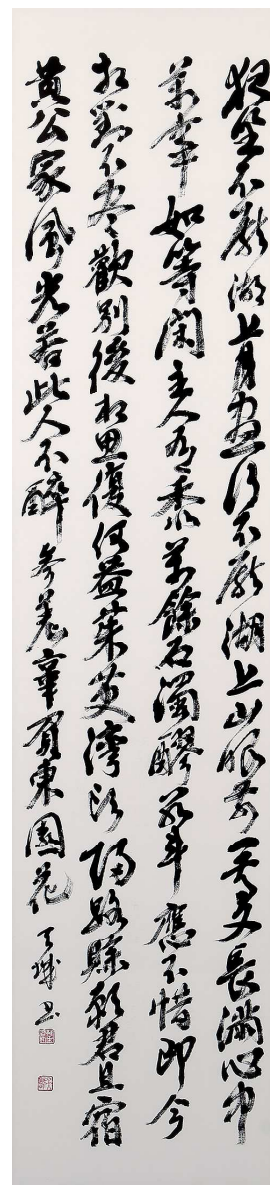 夜坐不厭湖上月晝行不厭湖上山眼前一尊又長滿心中
萬事如等閑主人有黍萬餘石濁醪數斗應不惜即今
相對不盡歡別後相思復何益茱萸灣頭歸路賒願君且宿
黃公家風光若此人不醉參差辜負東園花 城書